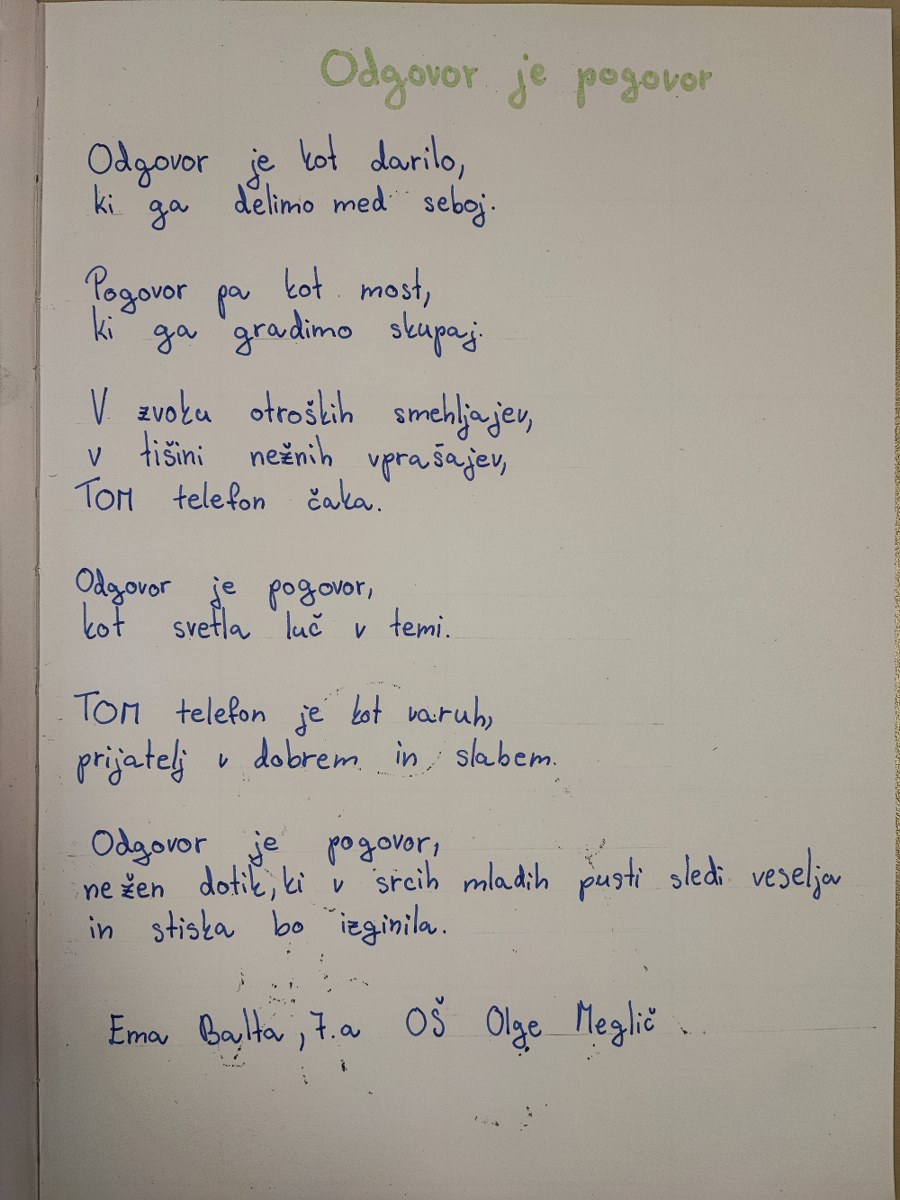 Odgovor je pogovor
Odgovor je kot darilo,
ki ga delimo med seboj.
Pogovor pa kot most,
ki ga gradimo skupaj.
V zvoku otroških smehljajev,
v tišini nežnih vprašajev,
TOM telefon čaka.
Odgovor je pogovor,
kot svetla luč v temi.
TOM telefon je kot varuh,
prijatelj v dobrem in slabem.
Odgovor je pogovor,
nežen dotik, ki v srcih mladih pusti sledi veselja
in stiska bo izginila.
Ema Balta, 7.a OŠ Olge Meglič